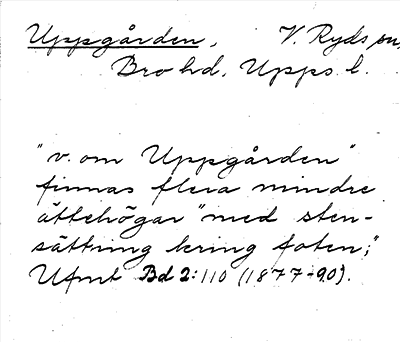 Uppgården, V. Ryds sn,
Bro hd, Upps. l.
"v. om Uppgården"
finnas flera mindre
ättehögar "med sten-
sättning kring foten;"
Ufmt Bd 2:110 (1877-90).